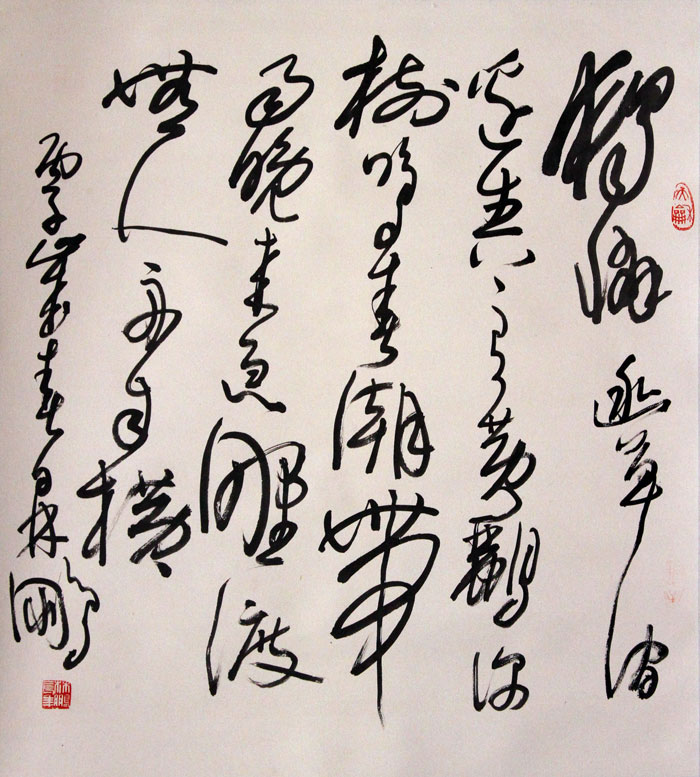 獨憐幽草澗
邊生上有黄鸝深
樹鳴春潮帶
雨晚来急野渡
無人舟自横
丙子歲春林鵬